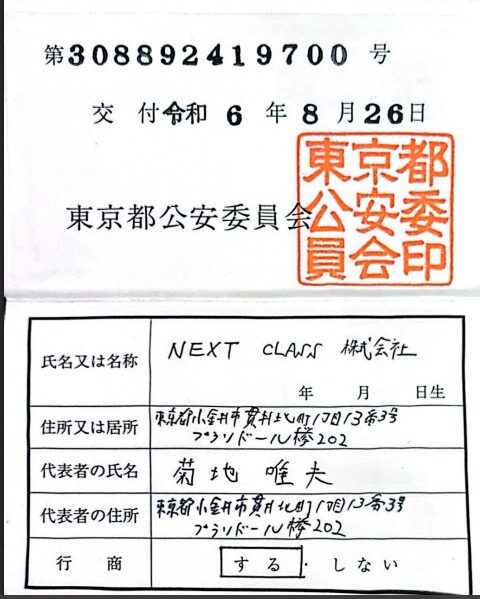 第308892419700号
交付 令和6年8月26日
東京都公安委員会
東京都
公安委
員会印
氏名又は名称 NEXT CLASS 株式会社
年 月 日生
住所又は居所 東京都小金井市貫井北町1丁目13番3号
プラリドール欅202
代表者の氏名 菊地 唯夫
代表者の住所 東京都小金井市貫井北町1丁目13番3号
プラリドール欅202
行商 する・しない